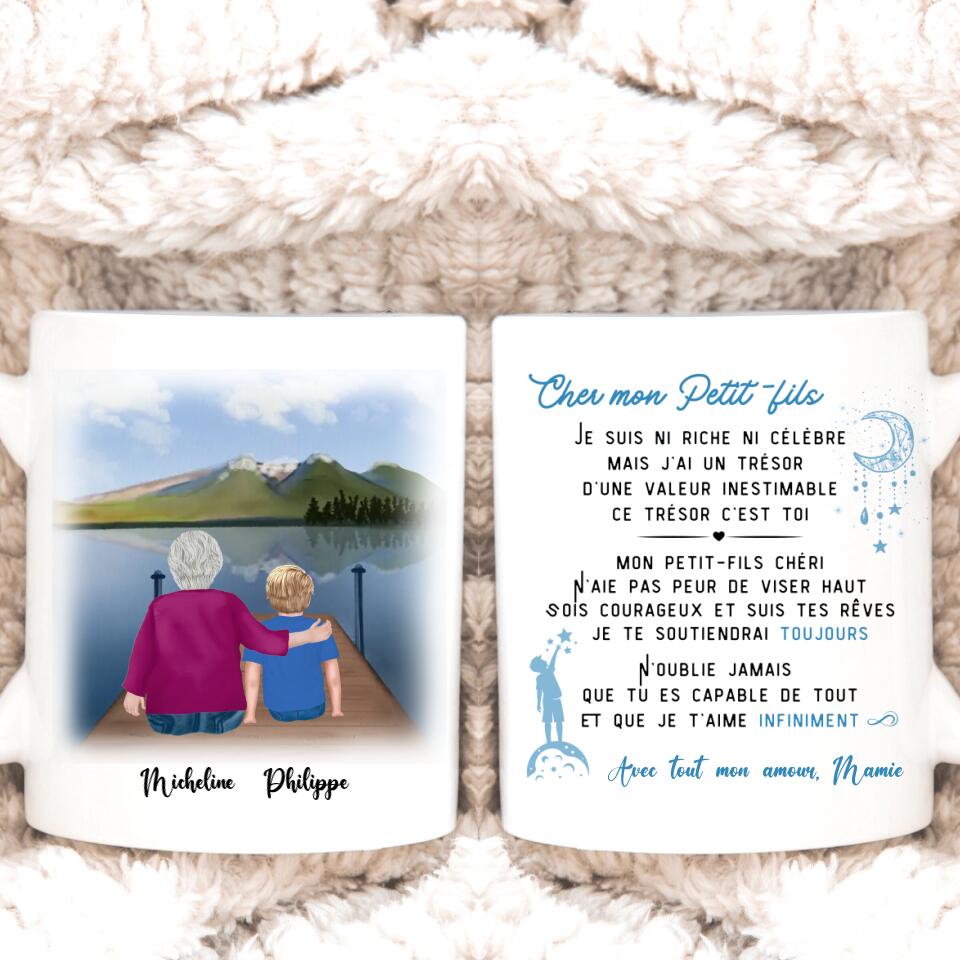 Micheline Philippe
Cher mon Petit-fils
JE SUIS NI RICHE NI CÉLÈBRE
MAIS J'AI UN TRÉSOR
D'UNE VALEUR INESTIMABLE
CE TRÉSOR C'EST TOI
MON PETIT-FILS CHÉRI
N'AIE PAS PEUR DE VISER HAUT
SOIS COURAGEUX ET SUIS TES RÊVES
JE TE SOUTIENDRAI TOUJOURS
N'OUBLIE JAMAIS
QUE TU ES CAPABLE DE TOUT
ET QUE JE T'AIME INFINIMENT
Avec tout mon amour, Mamie